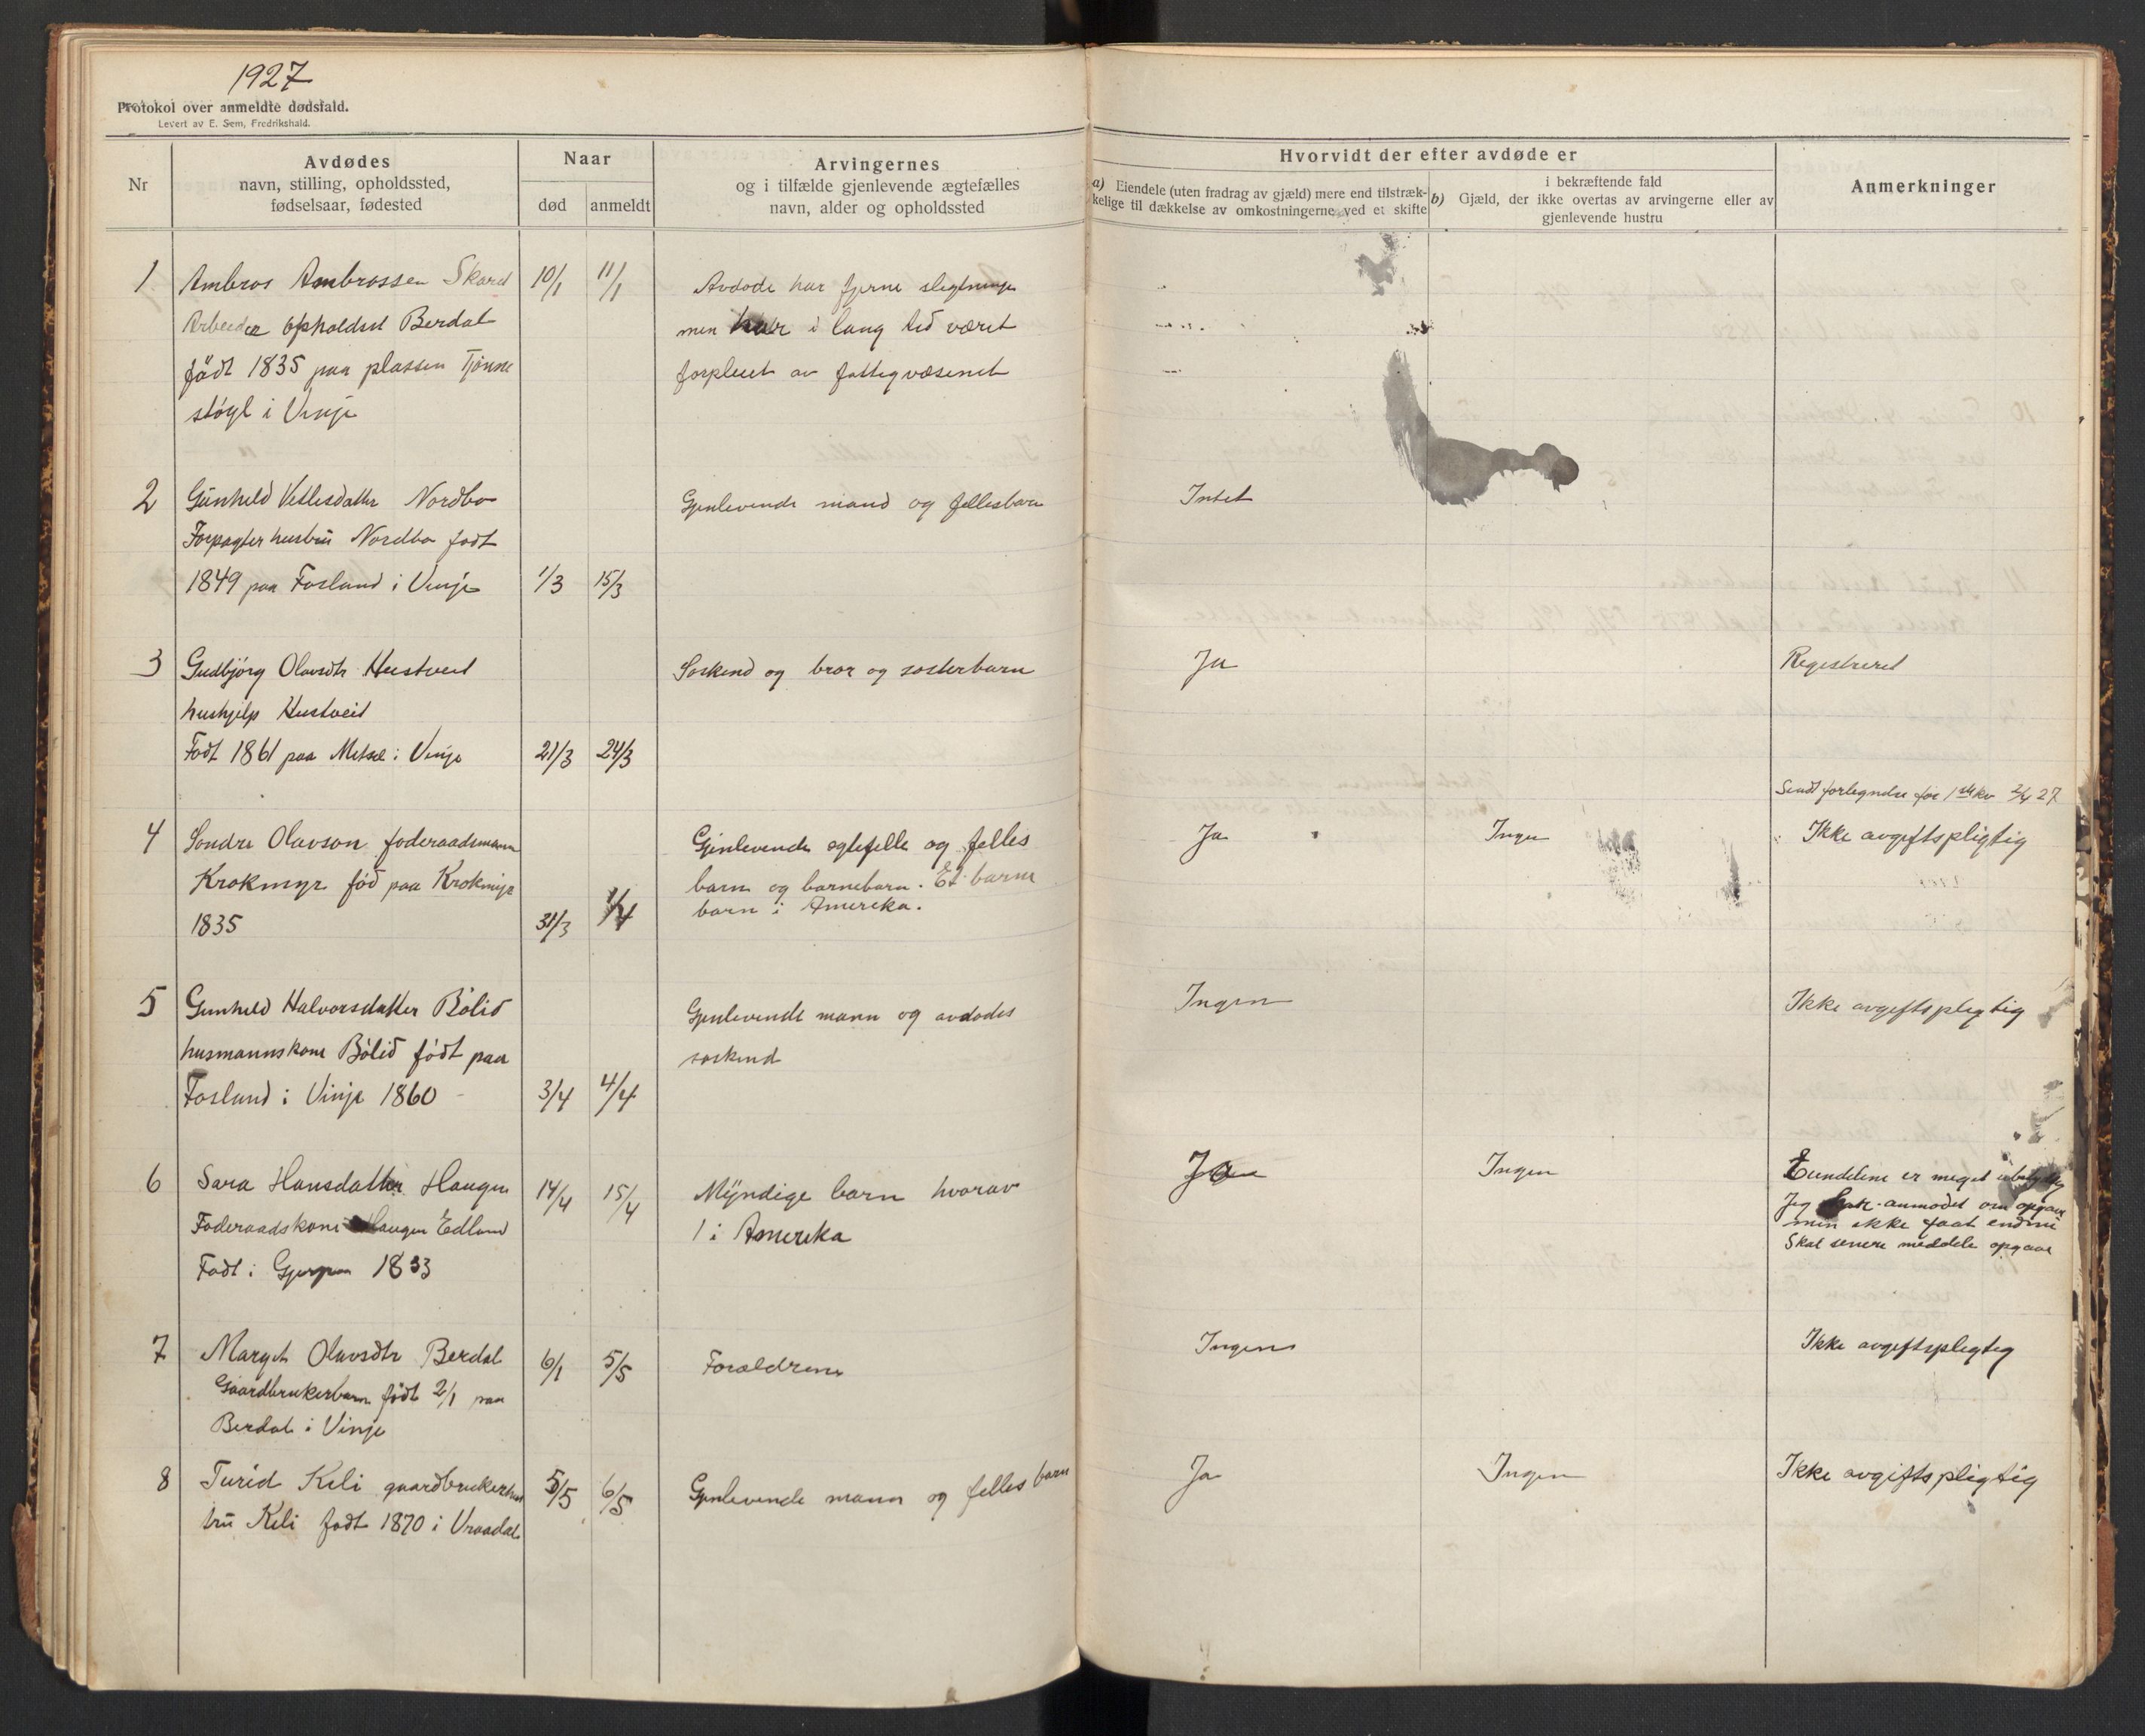 1927
Protokol over anmeldte dødsfald.
Levert av E. Sem, Fredrikshald.
Nr
Avdødes
navn, stilling, opholdssted,
fødselsaar, fødested
Naar
død
anmeldt
Arvingernes
og i tilfælde gjenlevende ægtefælles
navn, alder og opholdssted
Hvorvidt der efter avdøde er
a) Eiendele (uten fradrag av gjæld) mere end tilstræk-
kelige til dækkelse av omkostningerne ved et skifte
i bekræftende fald
b) Gjæld, der ikke overtas av arvingerne eller av
gjenlevende hustru
Anmerkninger
1
Ambros Ambrossen Skard
Arbeider opholdsst Berdal
født 1835 paa plassen Tjønne
støyl i Vinje
10/1
11/1
Avdøde har fjerne slegtninge
men har i lang tid været
forpleiet av fattigvæsenet
2
Gunheld Vetlesdatter Nordbo
Forpagter hustru Nordbo født
1849 paa Fosland i Vinje
1/3
15/3
Gjenlevende mand og fellesbarn
Intet
3
Gudbjørg Olavsdtr Hustveit
hushjelp Hustveit
Født 1861 paa Metsæ i Vinje
21/3
24/3
Søskend og bror og søsterbarn
Ja
Registreret
Sendt fortegnelse for 1ste kv 2/4 27
4
Sondre Olavson føderaadsmann
Krokmyr fød paa Krokmyr
1835
31/3
1/4
Gjenlevende egtefelle og felles
barn og barnebarn. Et barne
barn i Amerika.
Ja
Ingen
Ikke avgiftspligtig
5
Gunheld Halvorsdatter Bølid
husmannskone Bølid født paa
Fosland i Vinje 1860
3/4
4/4
Gjenlevende mann og avdødes
søskend
Ingen
Ikke avgiftspligtig
6
Sara Hansdatter Haugen
Føderaadskone Haugen Edland
Født i Gjerpen 1833
14/4
15/4
Myndige barn hvorav
1 i Amerika
Ja
Ingen
Eiendelene er meget ubetydelig
Jeg har anmodet om opgave
men ikke faat endnu
Skal senere meddele opgave
7
Margit Olavsdtr Berdal
Gaardbrukerbarn født 2/1 paa
Berdal i Vinje
6/1
5/5
Forældrene
Ingen
Ikke avgiftspligtig
8
Turid Kili gaardbrukerhus
tru Kili født 1870 i Vraadal
5/5
6/5
Gjenlevende mann og felles barn
Ja
Ingen
Ikke avgiftspligtig